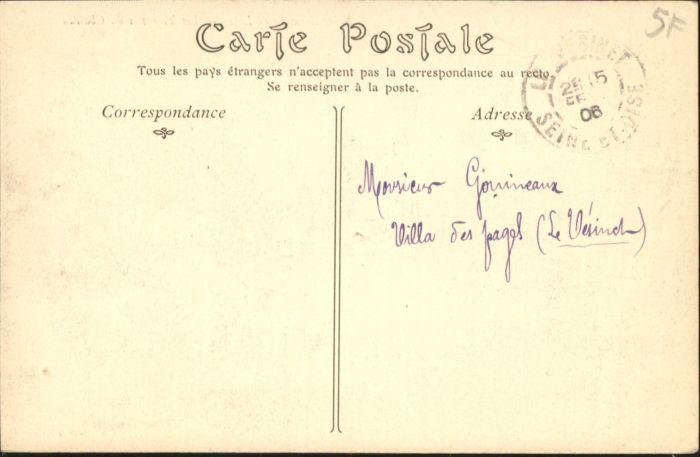 Carte Postale
5F
Tous les pays étrangers n'acceptent pas la correspondance au recto
Se renseigner à la poste.
Correspondance
Adresse
SEINE-ET-OISE
06
Monsieur
Villa des pages (Le Vésinet)